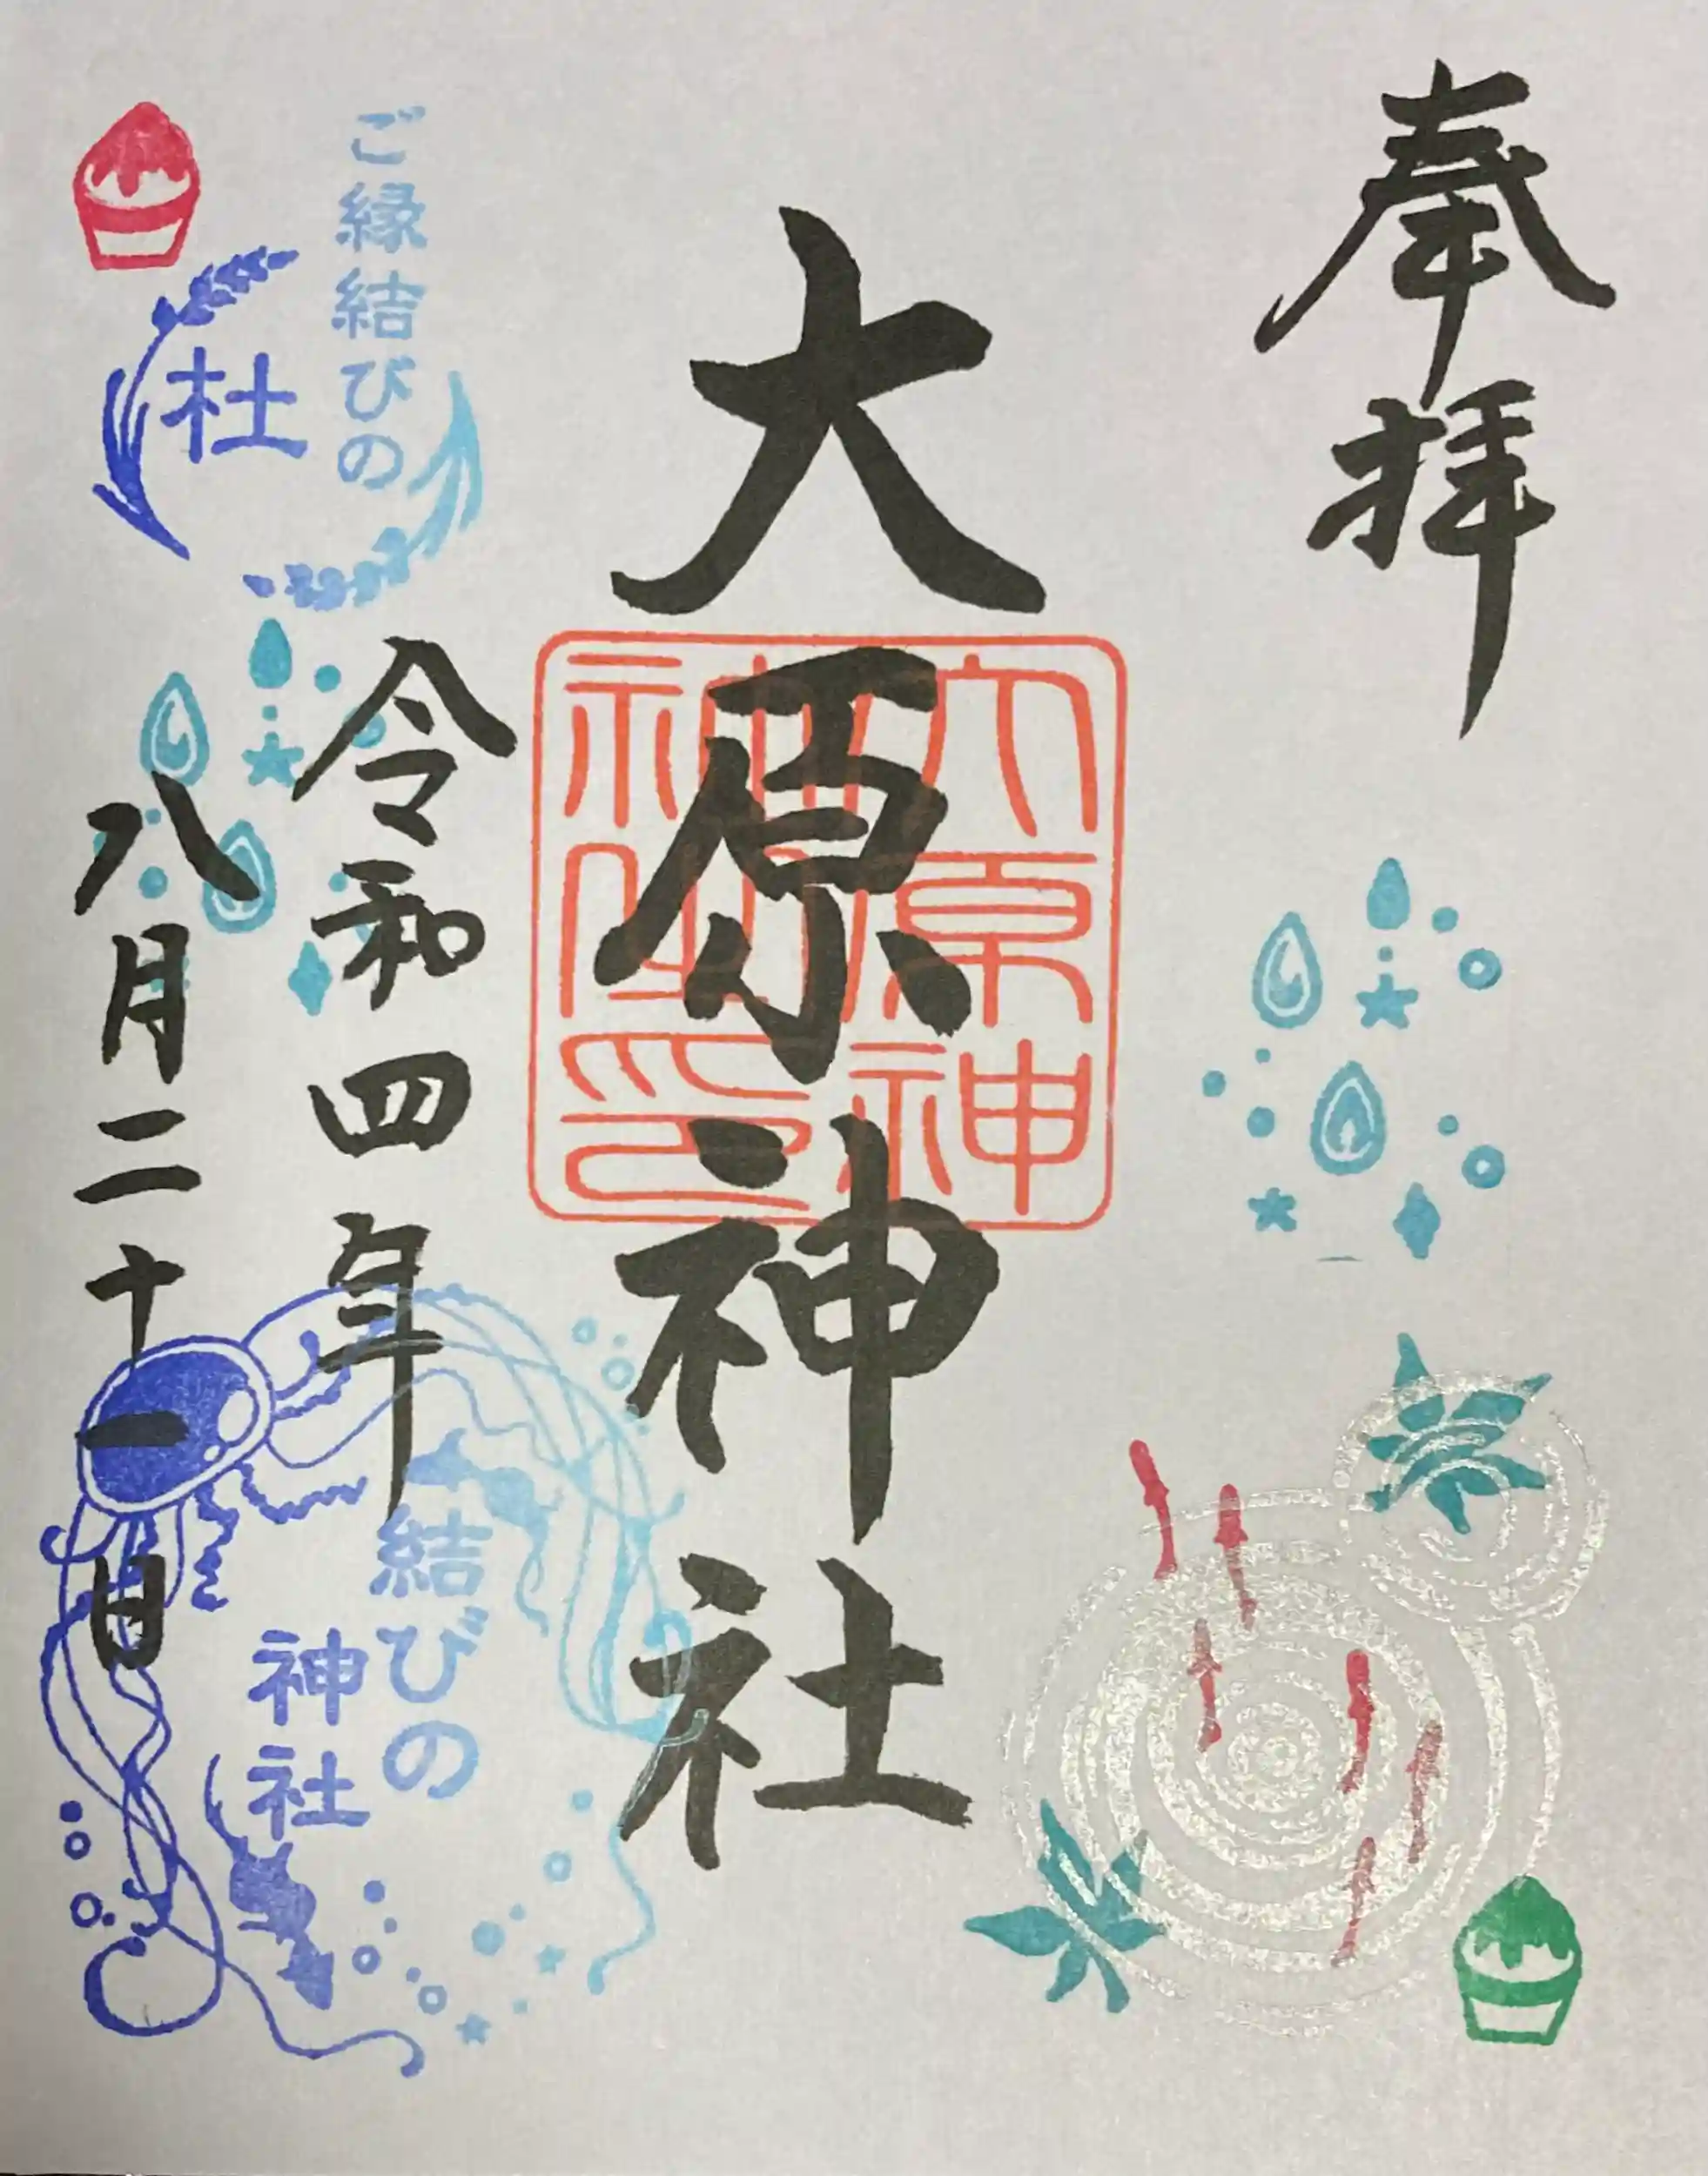 奉拝
大原神社
大原神社之印
令和四年
八月二十一日
ご縁結びの
杜
結びの
神社